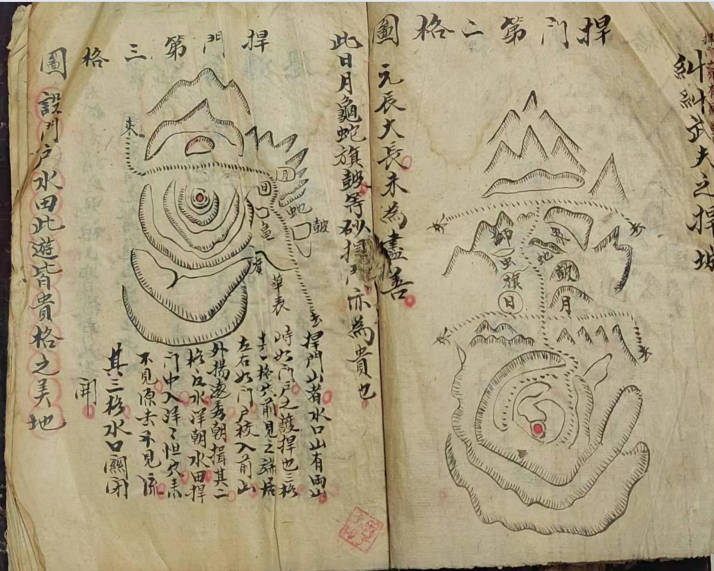 糾糾武夫之捍城
捍門第二格圖
元辰大長未為盡善
旗
日
蛇
鼓
月
此日月龜蛇旗鼓等砂捍門亦為貴也
捍門第三格圖
來
月
蛇
鼓
龜
華表
去
捍門山者水口山有兩山
時如門戶之護捍也三格
一格於前見之端居
左右如門戶校入前山
外揚遠秀朝揖其二
格以水洋朝水田捍
門中入洋
不見源去不見流
其三格水口關闭
設門戶水田此遊皆貴格之美地